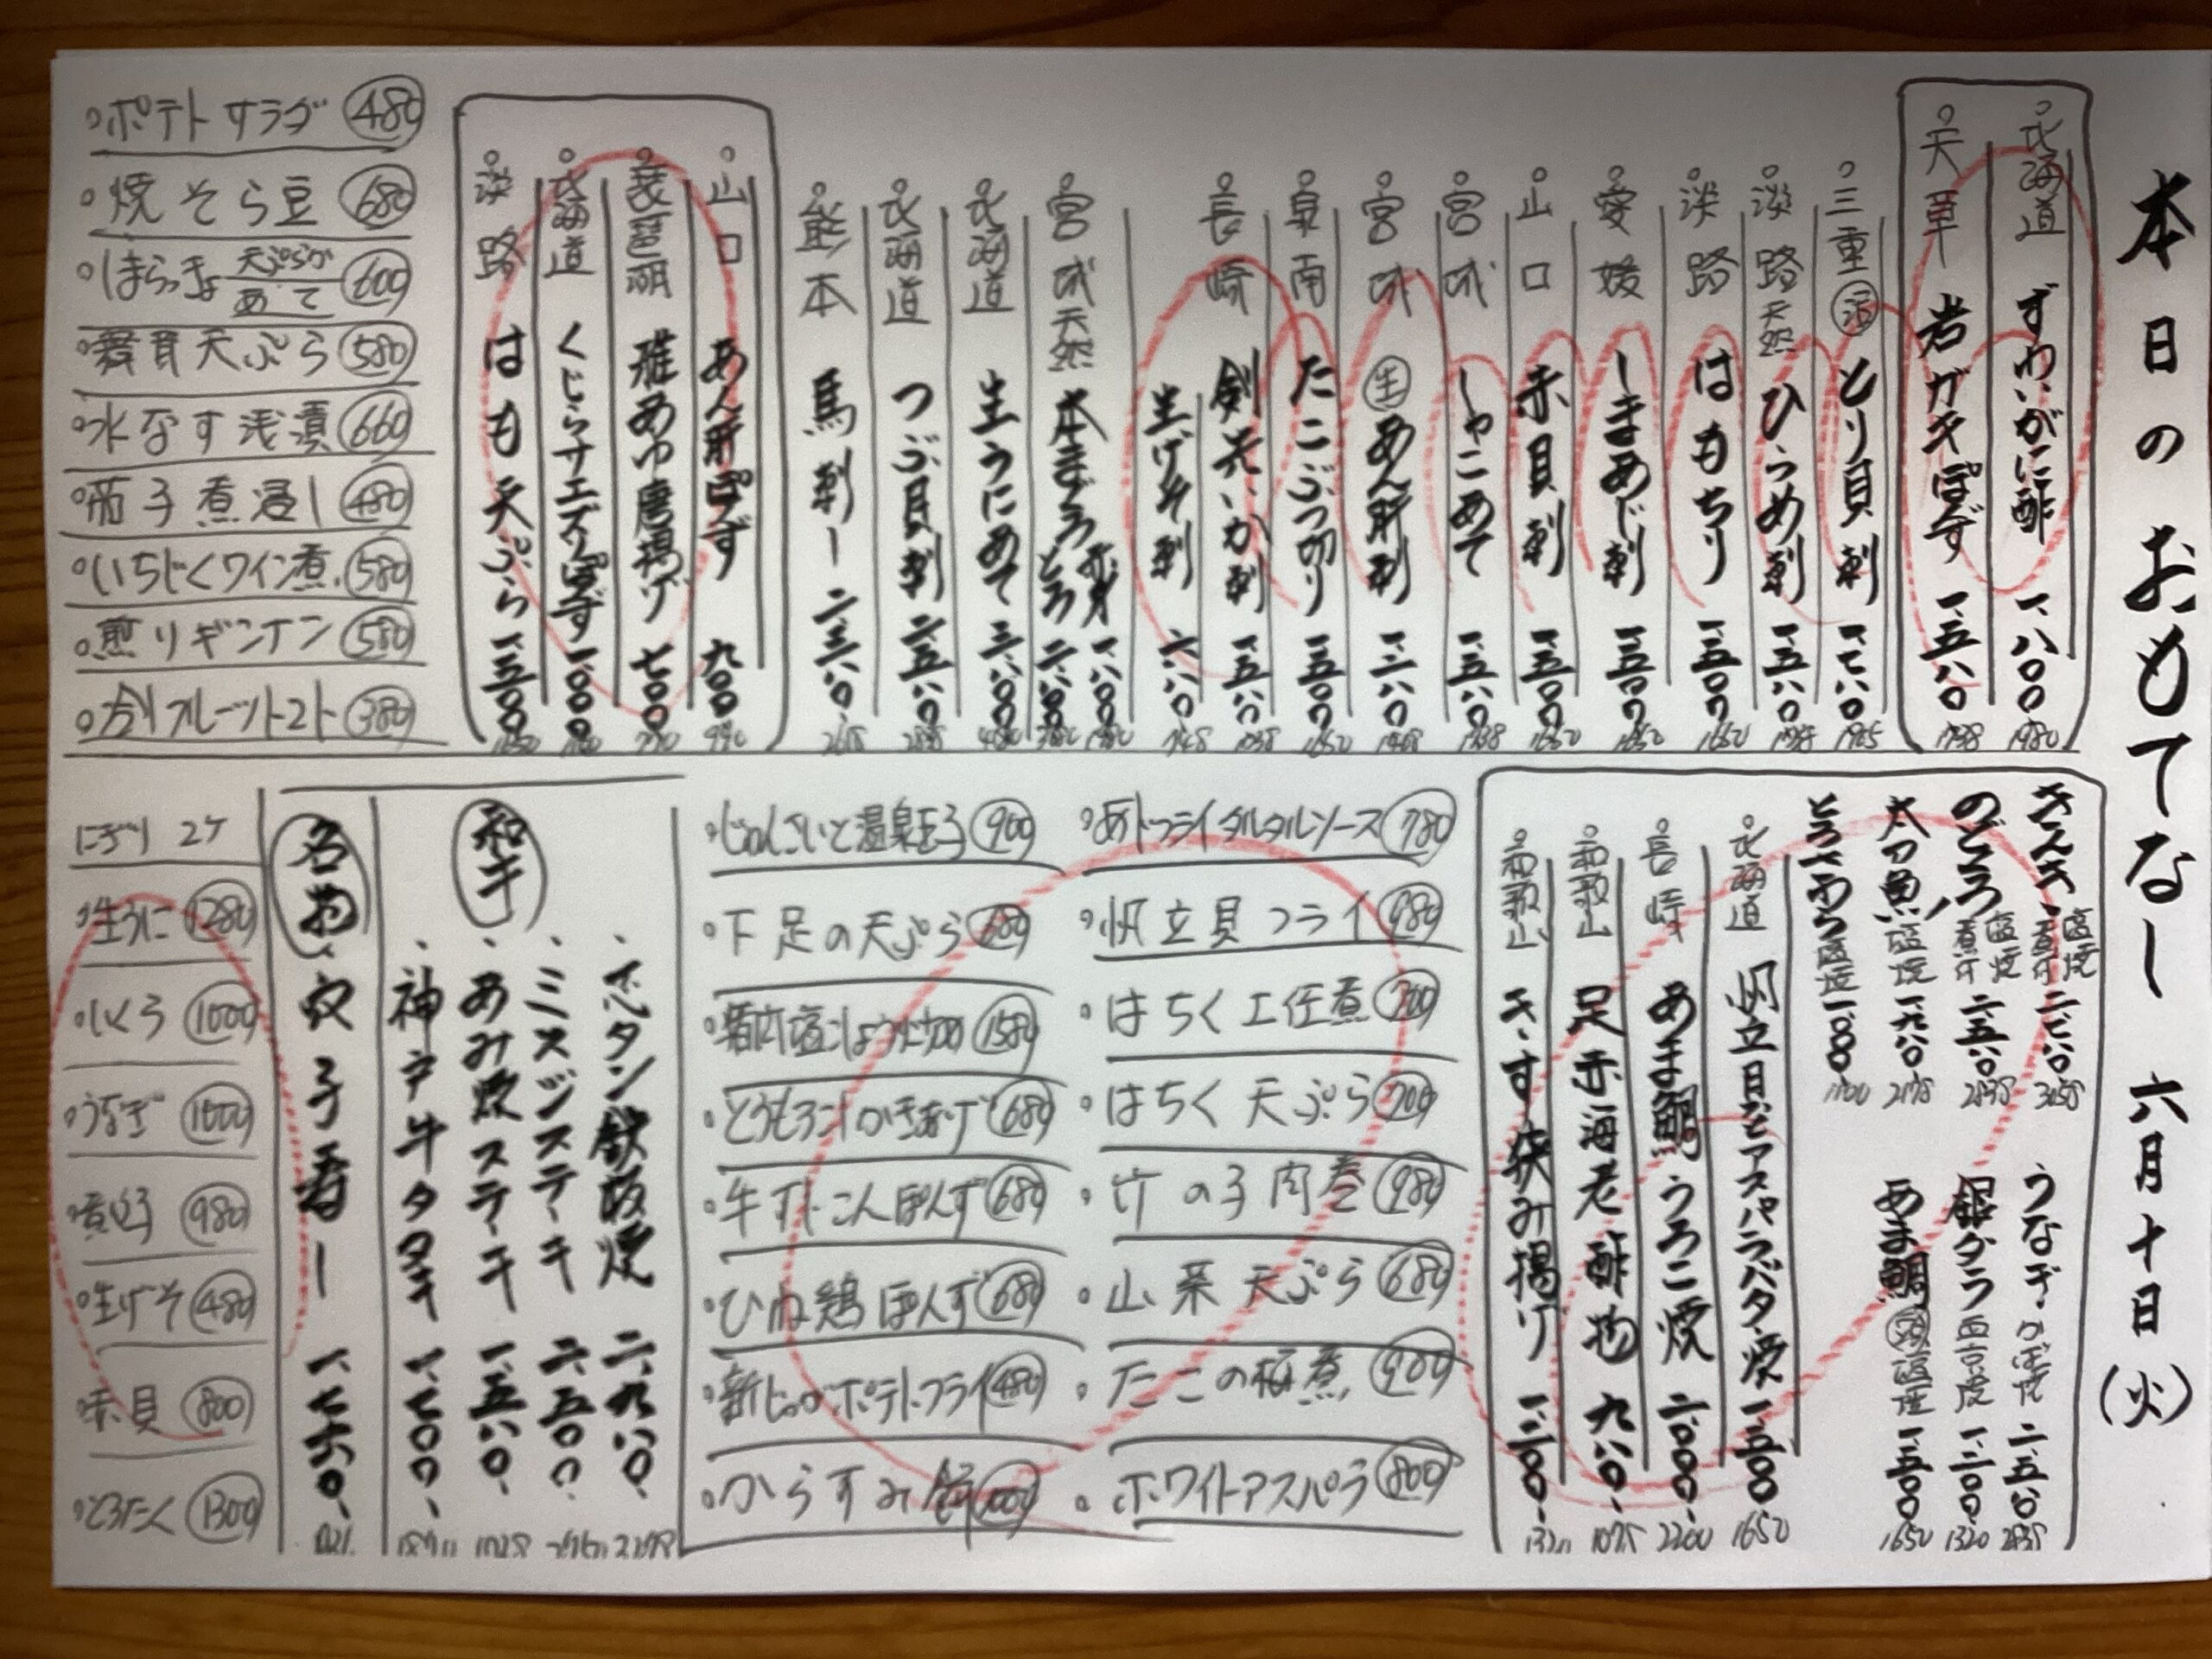 本日のおもてなし 六月十日(火)
北海道 ずわいがに酢 一、八〇〇 1980
天草 岩ガキぽんず 一、五八〇 1738
三重 活 とり貝刺
淡路 天然 ひらめ刺 一、五八〇
淡路 はもちり 一、五〇〇 1650
愛媛 しまあじ刺 一、五〇〇 1650
山口 赤貝刺 一、五〇〇 1650
宮城 しゃこあて 一、五八〇 1738
宮城 生 あん肝刺
泉南 たこぶつ切り 一、五〇〇 1650
長崎 剣先いか刺
生げそ刺 六八〇 748
宮城 天然 本まぐろ 赤身 一、八〇〇 1980
とろ
北海道 生うにあて
北海道 つぶ貝刺
熊本 馬刺し
山口 あん肝ぽんず 九〇〇 990
琵琶湖 稚あゆ唐揚げ 七〇〇 770
北海道 くじらサエズリぽんず 一、〇〇〇 1100
淡路 はも天ぷら 一、五〇〇 1650
・ポテトサラダ 480
・焼そら豆 680
・はらっきょ 天ぷらか あて 600
・舞茸天ぷら 580
・水なす浅漬 660
・茄子煮浸し 480
・いちじくワイン煮 580
・煎りギンナン 580
・冷しフルーツトマト 380
きんき 塩焼 煮付
のどぐろ 塩焼 煮付 二、五八〇 2838
太刀魚 塩焼 一、九八〇 2178
とろさわら 塩焼 一、〇〇〇 1100
うなぎ かば焼
銀ダラ 西京焼 一、二〇〇 1320
あま鯛 頭 塩焼 一、五〇〇 1650
北海道 帆立貝とアスパラバター焼 一、五〇〇 1650
長崎 あま鯛うろこ焼 二、〇〇〇 2200
和歌山 足赤海老酢物 九八〇 1078
和歌山 きす挟み揚げ 一、二〇〇 1320
・あじフライタルタルソース 780
・帆立貝フライ 980
・はちく土佐煮 700
・はちく天ぷら 700
・竹の子肉巻 980
・山菜天ぷら 680
・たこの梅煮 900
・ホワイトアスパラ 800
・じゅんさいと温泉玉子 900
・下足の天ぷら 680
・とうもろこしかきあげ 680
・牛すじこんぽんず 680
・ひね鶏ぽんず 680
・新じゃがポテトフライ 480
・からすみ
和牛
、芯タン鉄板焼 二、九八〇 3278
、ミスジステーキ 二、五〇〇
、あみ焼ステーキ 一、五八〇
、神戸牛タタキ 一、七〇〇 1870
名物、穴子寿し
にぎり 2ケ
・生うに 1280
・いくら 1000
・うなぎ 1000
・煮穴子 980
・生げそ 480
・赤貝 800
・とろたく 1300